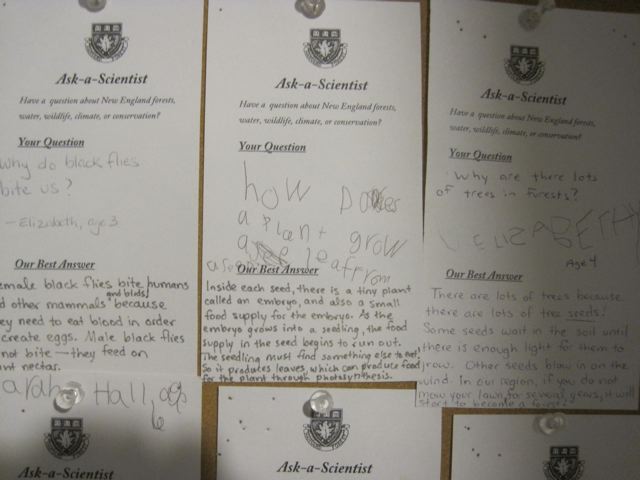 Ask-a-Scientist
Have a question about New England forests,
water, wildlife, climate, or conservation?
Your Question
why do black flies
bite us?
- Elizabeth, age 3
Our Best Answer
emale black flies bite humans
and birds
d other mammals because
ey need to eat blood in order
create eggs. Male black flies
not bite — they feed on
nt nectar.
Sarah Hall, age
6
Ask-a-Scientist
Ask-a-Scientist
Have a question about New England forests,
water, wildlife, climate, or conservation?
Your Question
how Does
a plant grow
a leaf from
a seed
Our Best Answer
Inside each seed, there is a tiny plant
called an embryo, and also a small
food supply for the embryo. As the
embryo grows into a seedling, the food
supply in the seed begins to run out.
The seedling must find something else to eat!
So it produces leaves, which can produce food
for the plant through photosynthesis.
Ask-a-Scientist
Ask-a-Scientist
Have a question about New England forests,
water, wildlife, climate, or conservation?
Your Question
Why are there lots
of trees in forests?
ELIZABETH
Age 4
Our Best Answer
There are lots of trees because
there are lots of tree seeds!
Some seeds wait in the soil until
there is enough light for them to
grow. Other seeds blow in on the
wind. In our region, if you do not
mow your lawn for several years, it will
start to become a forest!